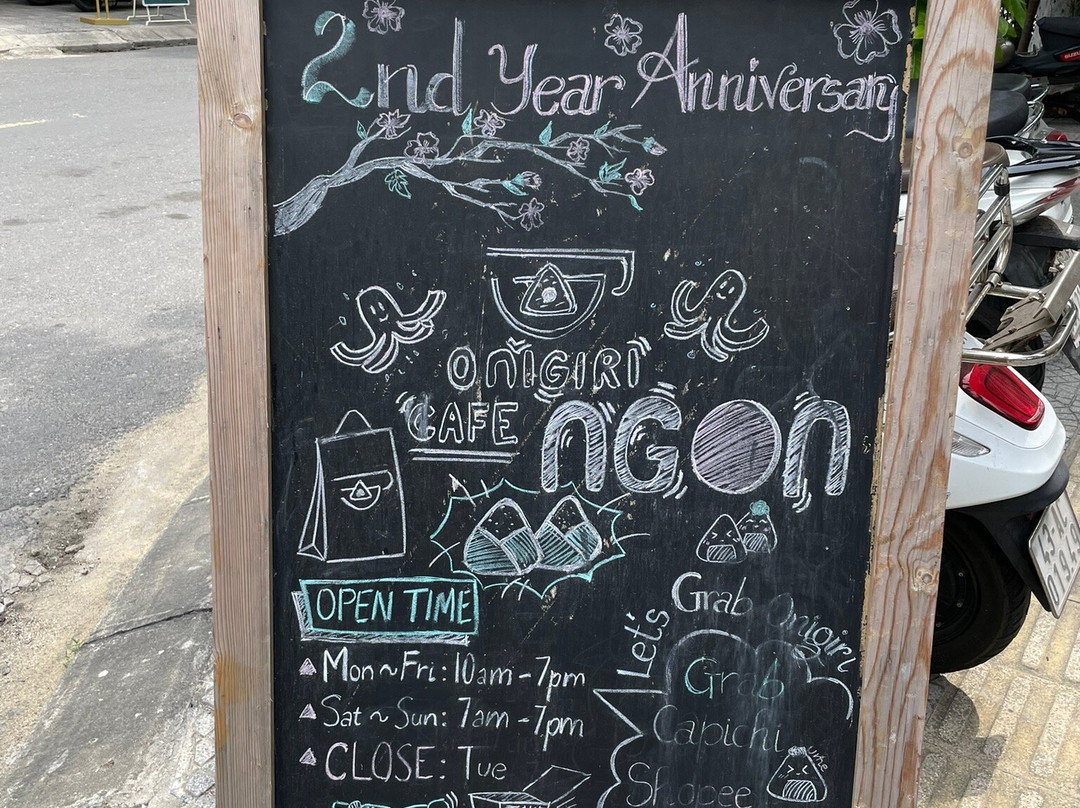 2nd Year Anniversary
ONIGIRI
CAFE NGON
OPEN TIME
Mon~Fri: 10am-7pm
Sat~Sun: 7am-7pm
CLOSE: Tue
Let's Grab Onigiri
Grab
Capichi
Shopee
ume